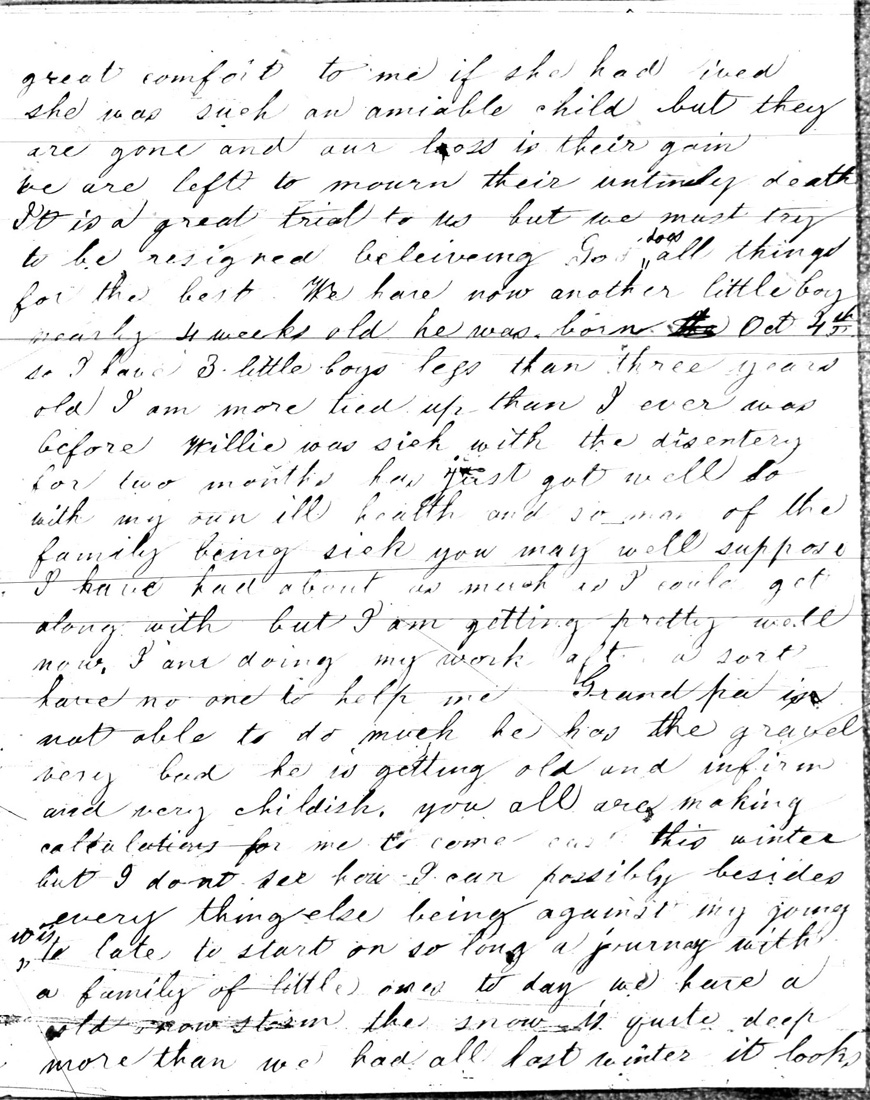 great comfort to me if she had lived
she was such an amiable child but they
are gone and our loss is their gain
we are left to mourn their untimely death
It is a great trial to us but we must try
to be resigned beleiveing God does all things
for the best We have now another little boy
nearly 4 weeks old he was born Oct 4th
so I have 3 little boys less than three years
old I am more tied up than I ever was
before Willie was sick with the disentery
for two months has just got well So
with my own ill health and so many of the
family being sick you may well suppose
I have had about as much as I could get
along with but I am getting pretty well
now, I am doing my work after a sort
have no one to help me Grand pa is
not able to do much he has the gravel
very bad he is getting old and infirm
and very childish. you all are making
calculations for me to come east this winter
but I dont see how I can possibly besides
every thing else being against my going
it is to late to start on so long a journey with
a family of little ones to day we have a
cold snow storm the snow is quite deep
more than we had all last winter it looks